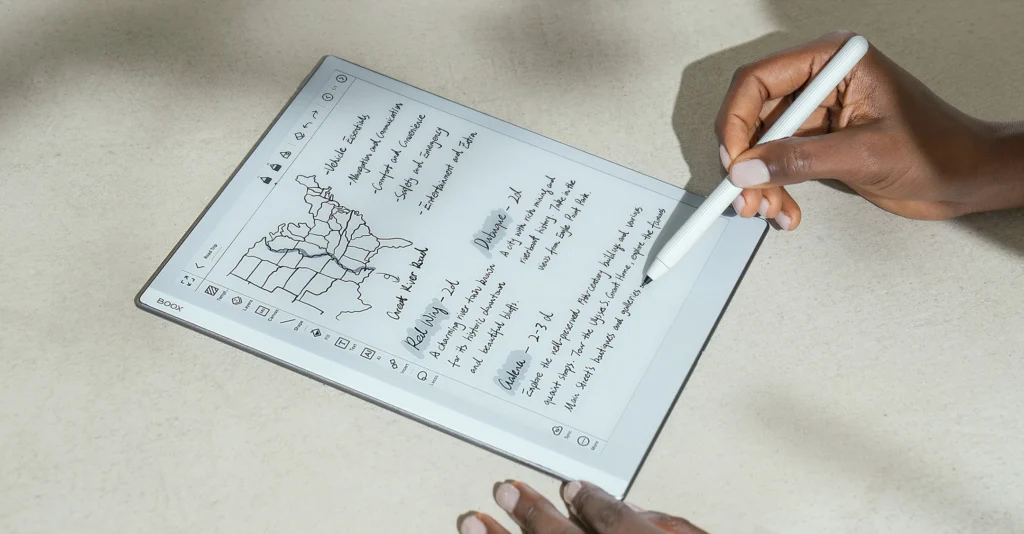 BOOX
Road Trip
- Vehicle Essentials
- Navigation and Communication
- Comfort and Convenience
- Safety and Emergency
- Entertainment and Extra
Great River Road
Red Wing - 2d
A charming river town known
for its historic downtown
and beautiful bluffs.
Dubuque 2d
A city with rich mining and
riverboat history. Take in the
views from Eagle Point Park.
Galena - 2-3 d
Explore the well-preserved 19th-century buildings and various
quaint shops. Tour the Ulysses S. Grant Home, explore the famous
Main Street's boutiques and galleries
Layers
Shape
Fill
Text
AI
Lasso
More